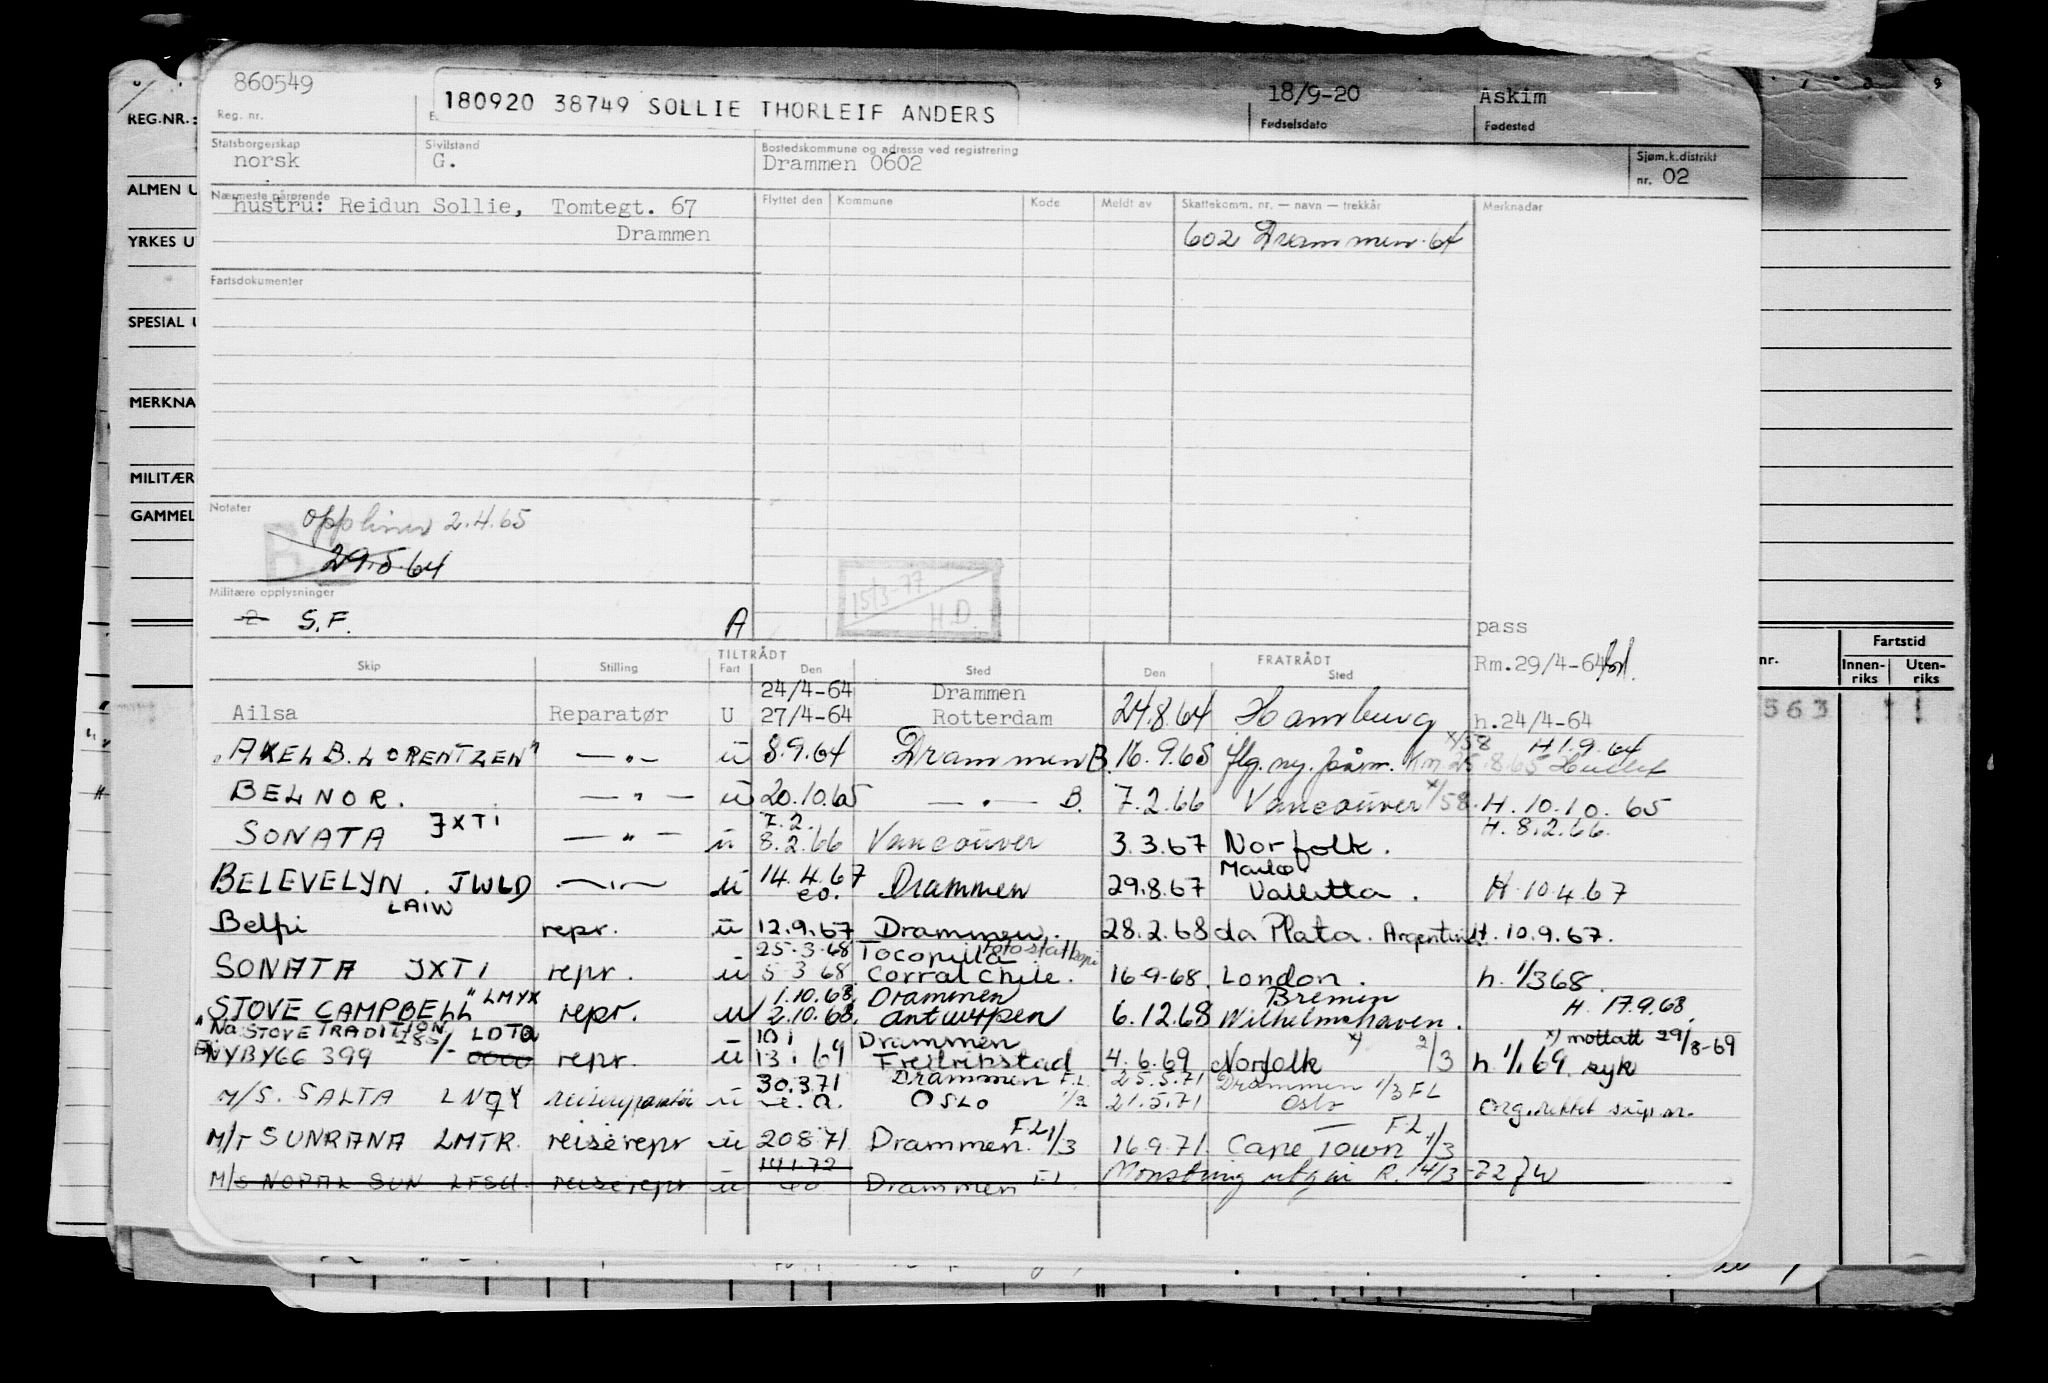 860549
180920 38749 SOLLIE THORLEIF ANDERS
18/9-20
Askim
REG.NR.:
Reg. nr.
Fødselsdato
Fødested
Statsborgerskap
norsk
Sivilstand
G.
Bostedskommune og adresse ved registrering
Drammen 0602
Sjøm.k.distrikt
nr. 02
ALMEN U
Nærmeste pårørende
hustru: Reidun Sollie, Tomtegt. 67
Drammen
Flyttet den
Kommune
Kode
Meldt av
Skattekomm. nr. — navn — trekkår
Merknader
602 Drammen. 64
YRKES U
Fartsdokumenter
SPESIAL U
MERKNA
MILITÆR
GAMMEL
Notater
2.4.65
29.5.64
15/3-77
H.D.
Militære opplysninger
2 S.F.
A
pass
Rm.29/4-64
Fartstid
nr.
Innen-
riks
Uten-
riks
563
TILTRÅDT
FRATRÅDT
Skip
Stilling
Fart
Den
Sted
Den
Sted
24/4-64 Drammen
Ailsa Reparatør U 27/4-64 Rotterdam 24.8.64 Hamburg h.24/4-64
"AXEL B. LORENTZEN" — " — ü 8.9.64 Drammen B. 16.9.65 x/58 H 1.9.64
BELNOR. — " — ü 20.10.65 — " — B. 7.2.66 Vancouver x/58. H. 10.10.65
7.2.
SONATA JXTI — " — ü 8.2.66 Vancouver 3.3.67 Norfolk. H. 8.2.66.
BELEVELYN. JWLD — " — ü 14.4.67 Drammen 29.8.67 Valletta. H. 10.4.67
LAIW
Belpi repr. ü 12.9.67 Drammen. 28.2.68 da Plata. H. 10.9.67.
25.3.68 Tocopilla Fotostatkopi
SONATA JXTI repr. ü 5 3 68 Corral Chile. 16-9-68. London. h. 1/3 68.
1.10.68, Drammen Bremen
"STOVE CAMPBELL" LMYX repr. u 2.10.68. Antwerpen 6.12.68 Wilhelmshaven. H. 17.9.68.
STOVE TRADITION LDTQ 10 1 Drammen x) mottatt 29/8-69
NYBYGG 399 285/- repr. ü 13 1 69 Fredrikstad 4.6.69 Norfolk x) 2/3 h. 1/1 69. syk
30.3.71 Drammen F.L. 25.5.71 Drammen 1/3 FL
M/S. SALTA LNQY ü OSLO 1/3 21.5.71 Oslo
M/T SUNRANA LMTR. reiserepr ü 20 8 71 Drammen. F.L 1/3 16 9.71. Cape Town F.L 1/3
14 1 72
M/S NOPAL SUN LFSU. reiserepr ü Drammen F.L. Mønstring utgår R. 14/3-72